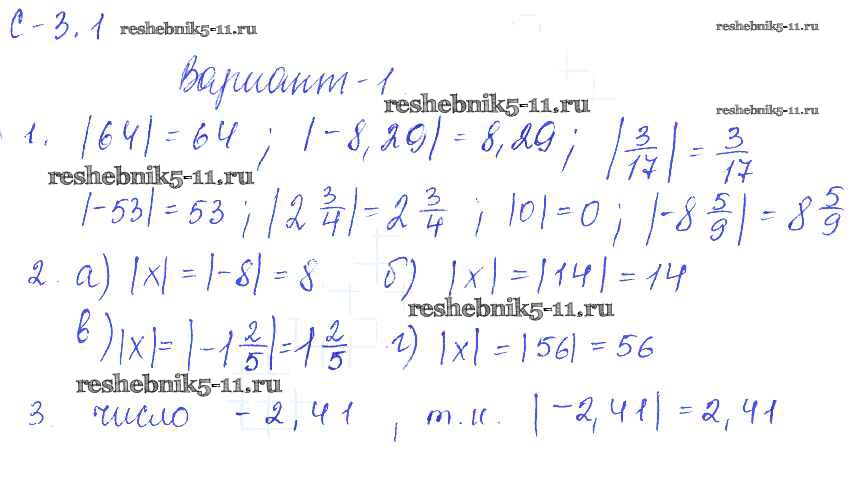 С-3.1 reshebnik5-11.ru reshebnik5-11.ru
Вариант-1
reshebnik5-11.ru reshebnik5-11.ru
1. |64| = 64 ; |-8,29| = 8,29 ; |3/17| = 3/17
reshebnik5-11.ru
|-53| = 53 ; |2 3/4| = 2 3/4 ; |0| = 0 ; |-8 5/9| = 8 5/9
2. а) |x| = |-8| = 8 б) |x| = |14| = 14
reshebnik5-11.ru
в) |x| = |-1 2/5| = 1 2/5 г) |x| = |56| = 56
reshebnik5-11.ru
3. число -2,41 , т.к. |-2,41| = 2,41